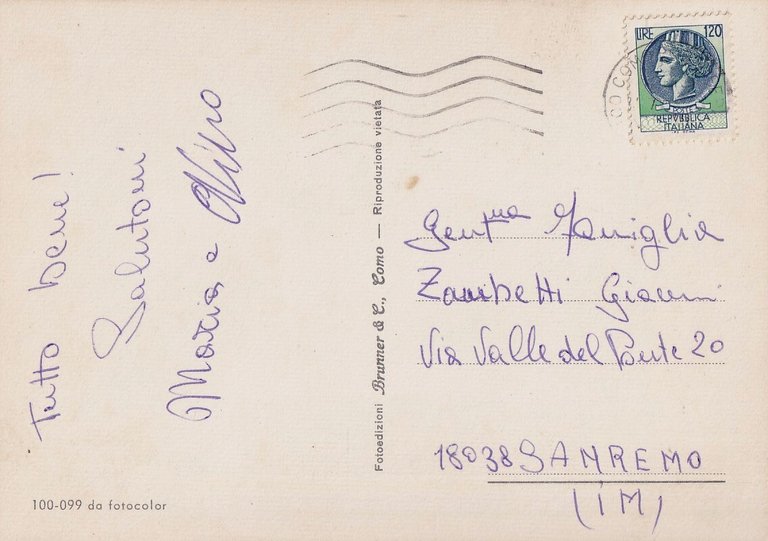 Tutto bene!
Salutoni
Maria e Nino
100-099 da fotocolor
Fotoedizioni Brunner & C., Como — Riproduzione vietata
LIRE 120
POSTE
REPVBBLICA
ITALIANA
Gent.ma Famiglia
Zambetti Gianni
Via Valle del Ponte 20
18038 SANREMO
(IM)